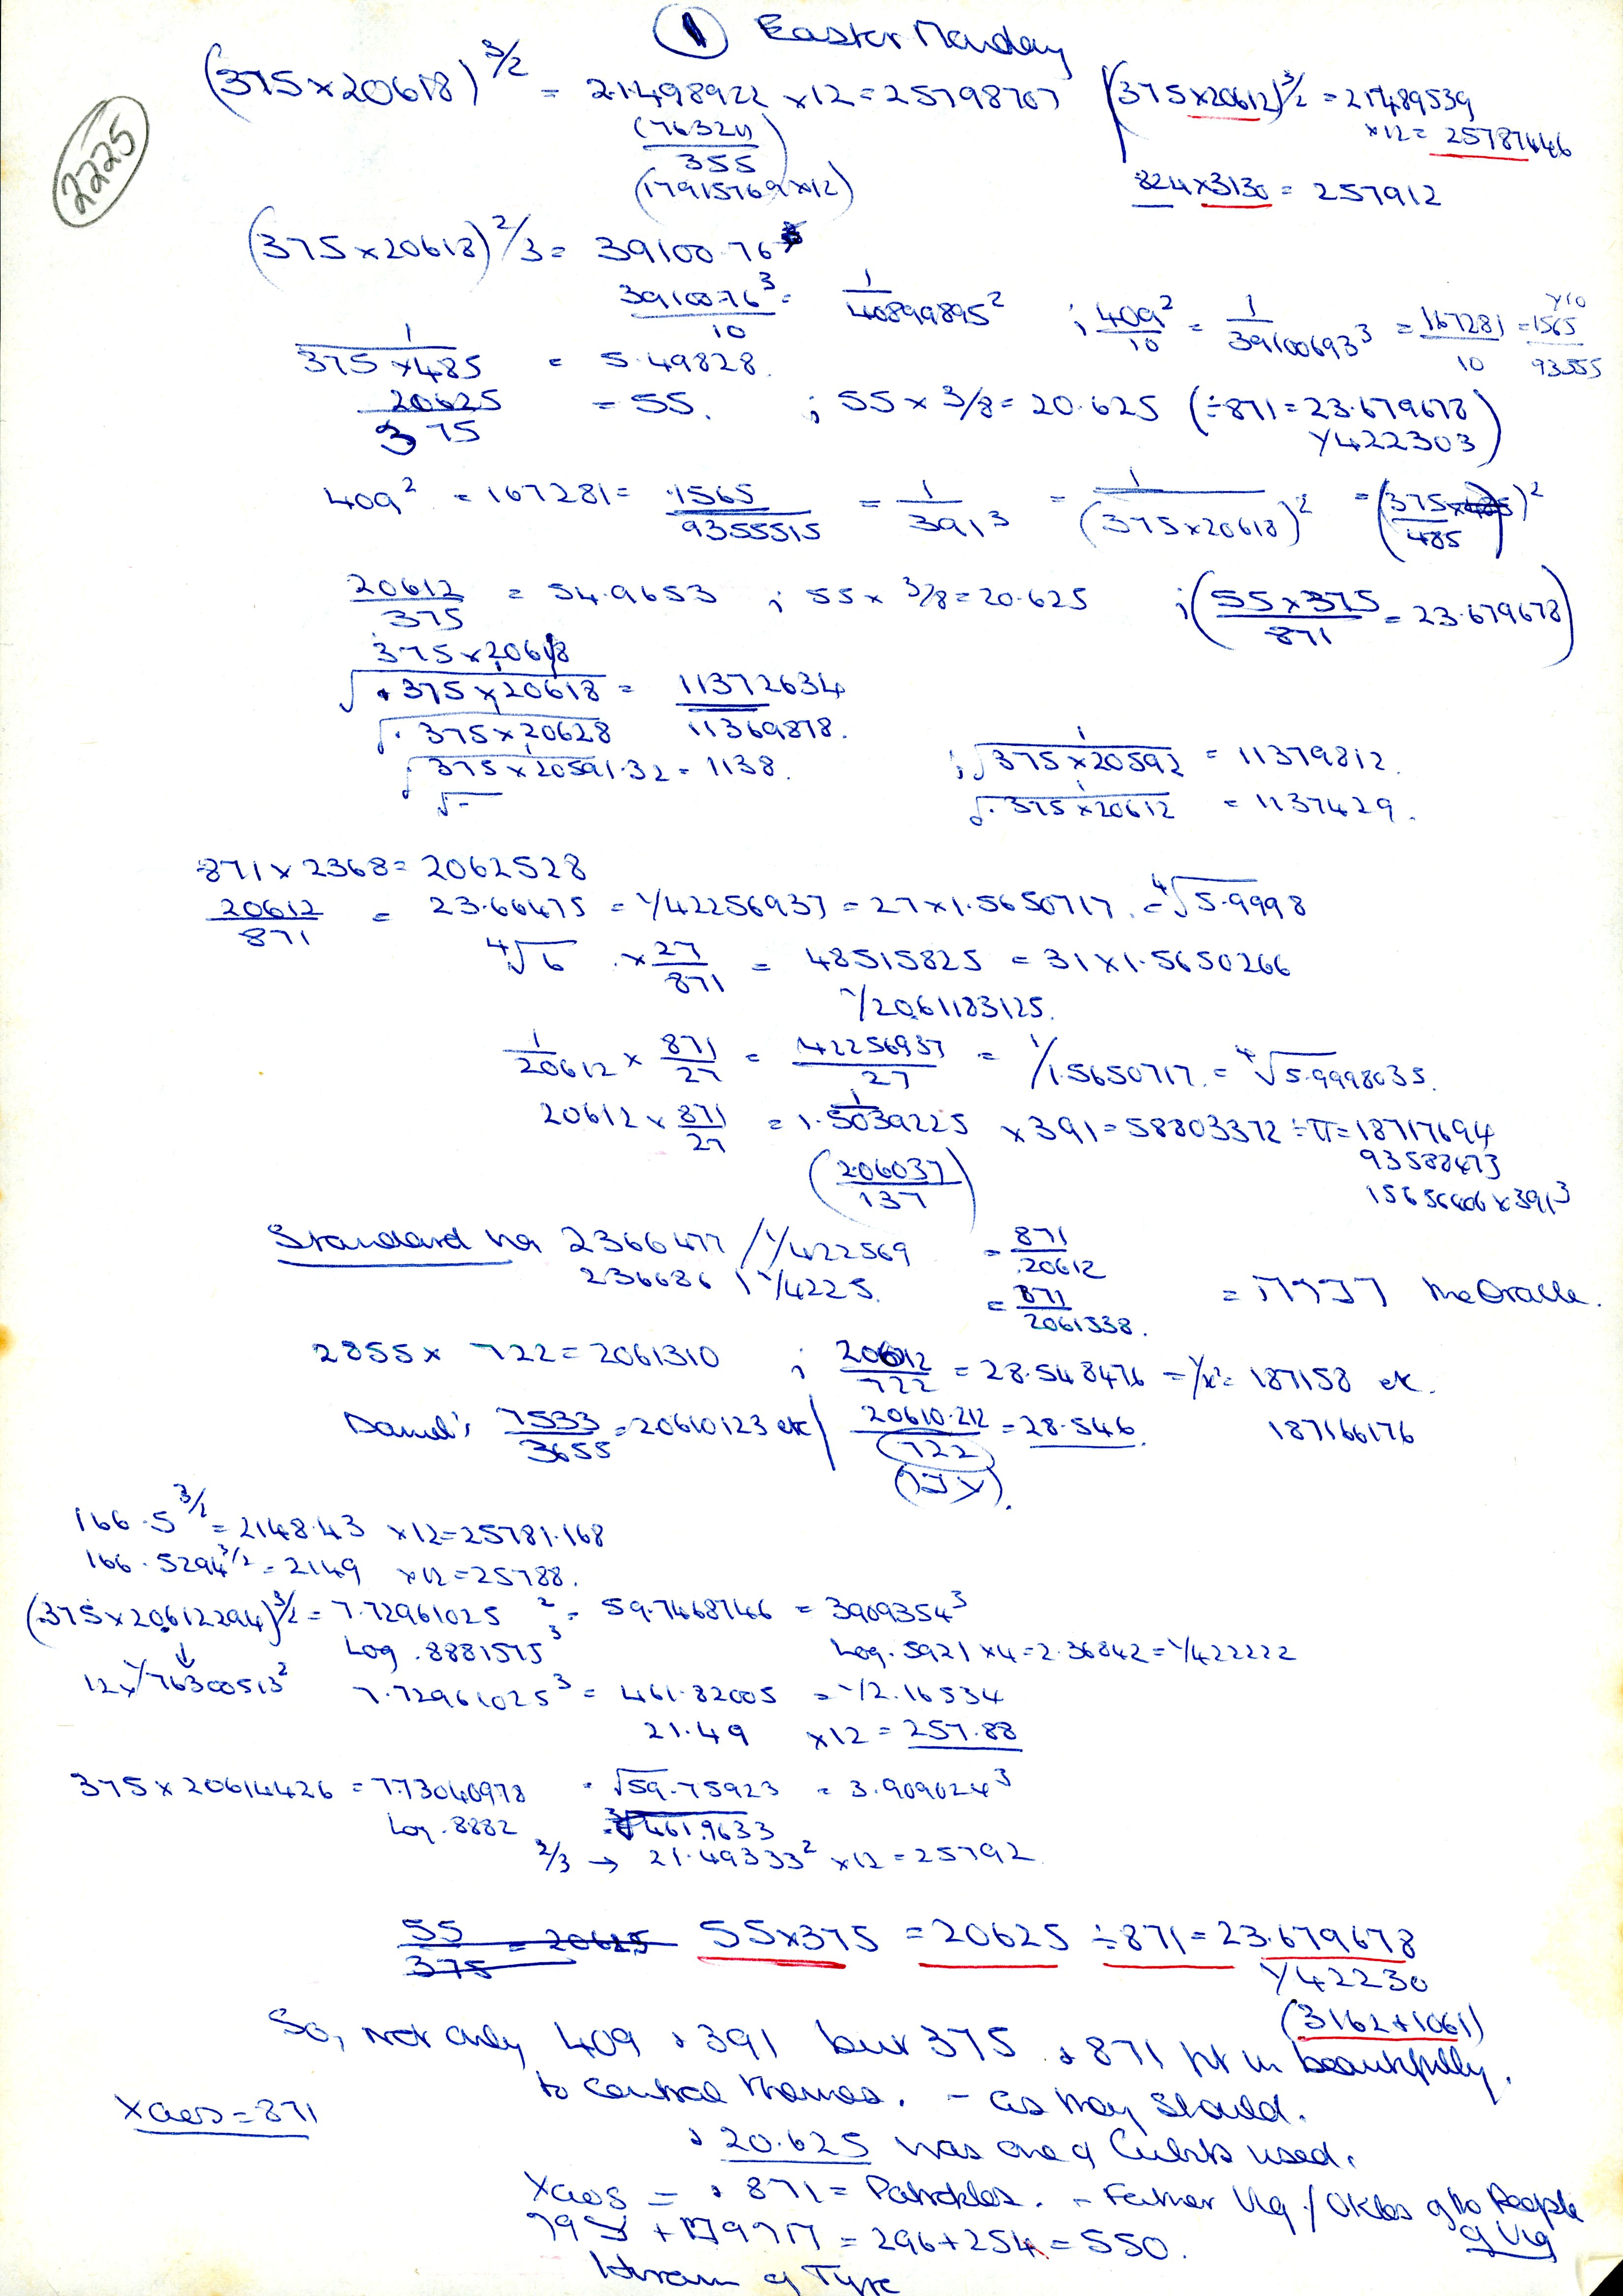 ① Easter Monday
(375×20618)^3/2 = 21498922 ×12 = 25798707
(375×20612)^3/2 = 21489539
×12 = 25787446
(76321)
355
(17915769×12)
824×3130 = 257912
2225
(375×20618)^2/3 = 39100.76
39100.76³/10 = 1/40899895² ; 409²/10 = 1/39100693³ = 167281/10 = 1565/93555
1/375×485 = 5.49828.
20625/375 = 55. ; 55 × 3/8 = 20.625 (÷871 = 23.679678
1/422303)
409² = 167281 = .1565/9355515 = 1/391³ = 1/(375×20618)² = (375/485)²
20612/375 = 54.9653 ; 55 × 3/8 = 20.625 ; (55×375/871 = 23.679678)
375×20618
√.375×20618 = 11372634
√.375×20628 11369878.
√375×20591.32 = 1138. ; √375×20592 = 11379812.
√.375×20612 = 1137429.
.871×2368 = 2062528
20612/871 = 23.66475 = 1/42256937 = 27×1.5650717. = ⁴√5.9998
⁴√6 × 27/871 = 48515825 = 31×1.5650266
1/2061183125.
1/20612 × 871/27 = 42256937/27 = 1/1.5650717. = ⁴√5.9998035.
20612 × 871/27 = 1/1.5039225 ×391 = 58803372 ÷π = 18717694
93588473
(206037/137)
15656406×391³
Standard no 2366477 / 1/422569 = 871/20612
236686 / 1/4225. = 871/2061338. = דדרי The Oracle.
2855 × 722 = 2061310 ; 20612/722 = 28.548476 = 1/x² = 187158 etc.
Daniel's 7533/3655 = 20610123 etc / 20610.212/722 = 28.546. 187166176
166.5^3/2 = 2148.43 ×12 = 25781.168
166.5294^3/2 = 2149 ×12 = 25788.
(.375×20612294)^3/2 = 7.72961025² = 59.7468746 = 3909354³
Log .8881575³ Log .5921×4 = 2.36842 = 1/422222
12×1/76300513² 7.72961025³ = 461.82005 = 1/2.16534
21.49 ×12 = 257.88
375×20614426 = 7.73040978 = √59.75923 = 3.909024³
Log .8882 = ³√461.9633
2/3 → 21.49333² ×12 = 25792
55/375 = 20625 55×375 = 20625 ÷871 = 23.679678
1/42230
(3162+1061)
So, not only 409 & 391 but 375 & 871 fit in beautifully.
to central themes. - as they should.
Xaos = 871
& 20.625 was one of Cubits used.
Xaos = & 871 = Patrokles. - Father Ug / Okles of the People of Ug
= 296+254 = 550.
Hiram of Tyre